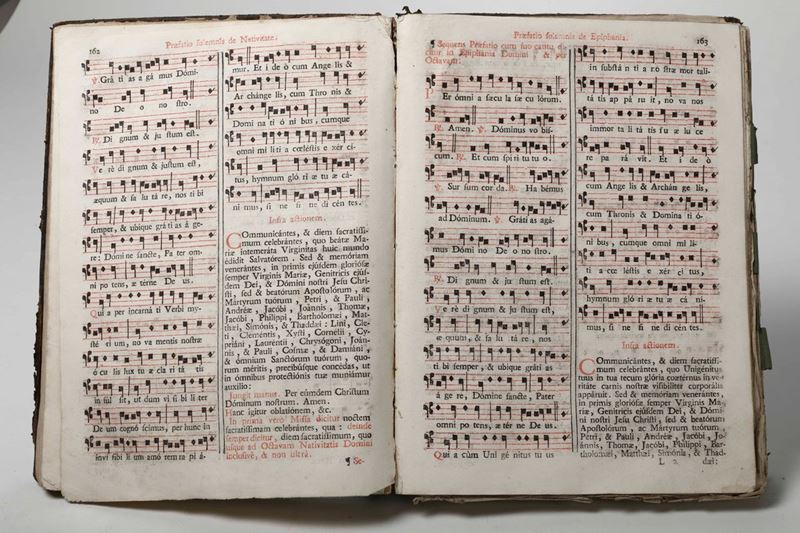 162
Præfatio solemnis de Nativitate.
℣. Grá ti as a gá mus Dómi-
no De o no stro.
℟. Di gnum & ju stum est.
Ve rè di gnum & justum est,
æquum & sa lu tá re, nos ti bi
semper, & ubique grá ti as á ge-
re: Dómi ne sancte, Pa ter om-
ni po tens, æ térne De us.
Qui a per incarná ti Verbi my-
sté ri um, no va mentis nostræ
ó cu lis lux tu æ cla ri tá tis
in fúl sit, ut dum vi si bi li ter
De um cognó scimus, per hunc in
invi sibi li um amó rem ra pi á-
mur. Et i de ò cum Ange lis &
Ar chánge lis, cum Thro nis &
Domi na ti ó ni bus, cumque
omni mi li ti a cœléstis e xér ci-
tus, hymnum gló ri æ tu æ cá-
ni mus, si ne fi ne di cén tes.
Infra actionem.
Communicántes, & diem sacratíssi-
mum celebrántes, quo beátæ Ma-
riæ intemerata Virginitas huic mundo
édidit Salvatórem. Sed & memóriam
venerántes, in primis ejúsdem gloriósæ
semper Virginis Mariæ, Genitrícis ejús-
dem Dei, & Dómini nostri Jesu Chri-
sti, sed & beatórum Apostolórum, ac
Martyrum tuórum, Petri, & Pauli,
Andréæ, Jacóbi, Joánnis, Thomæ,
Jacóbi, Philippi, Bartholomæi, Mat-
thæi, Simónis, & Thaddæi: Lini, Cle-
ti, Cleméntis, Xysti, Cornélii, Cy-
priáni, Lauréntii, Chrysógoni, Joán-
nis, & Pauli, Cosmæ, & Damiáni,
& ómnium Sanctórum tuórum, quo-
rum méritis, precibúsque concédas, ut
in ómnibus protectiónis tuæ muniámur
auxílio:
Jungit manus. Per eúmdem Christum
Dóminum nostrum. Amen.
Hanc igitur oblatiónem, &c.
In prima verò Missa dicitur noctem
sacratíssimam celebrántes, qua: deinde
semper dicitur, diem sacratíssimum, quo
usque ad Octavam Nativitatis Domini
inclusivè, & non ultrà.
¶ Se-
Præfatio solemnis de Epiphania.
163
¶ Sequens Præfatio cum suo cantu di-
citur in Epiphania Domini, & per
Octavam.
Per ómni a sæcu la sæ cu lórum.
℟. Amen. ℣. Dóminus vo bís-
cum. ℟. Et cum spi ri tu tu o.
℣. Sur sum cor da. ℟. Ha bémus
ad Dóminum. ℣. Gráti as agá-
mus Dómi no De o no stro.
℟. Di gnum & ju stum est.
Ve rè di gnum & justum est,
æ quum, & sa lu tá re, nos
ti bi semper, & ubique gráti as
á ge re, Dómine sancte, Pater
omni po tens, æ tér ne De us.
Qui a cùm Uni gé nitus tu us
in substá n ti a no stræ mor tali-
tá tis ap pá ru it, no va nos
immor ta li tá tis su æ lu ce
re pa rá vit. Et i de ò
cum Ange lis & Archán ge lis,
cum Thronis & Domina ti ó-
ni bus, cumque omni mi li-
ti a cœ léstis e xér ci tus,
hymnum gló ri æ tu æ cá ni-
mus, si ne fi ne di cén tes.
Infra actionem.
Communicántes, & diem sacratíssi-
mum celebrántes, quo Unigénitus
tuus in tua tecum glória coætérnus in ve-
ritáte carnis nostræ visibíliter corporális
appáruit. Sed & memóriam venerántes,
in primis gloriósæ semper Virgínis Ma-
riæ, Genitrícis ejúsdem Dei, & Dómi-
ni nostri Jesu Christi, sed & beatórum
Apostolórum, ac Mártyrum tuórum,
Petri, & Pauli, Andréæ, Jacóbi, Jo-
ánnis, Thomæ, Jacóbi, Philippi, Bar-
tholomæi, Matthæi, Simónis, & Thad-
L 2 dæi: